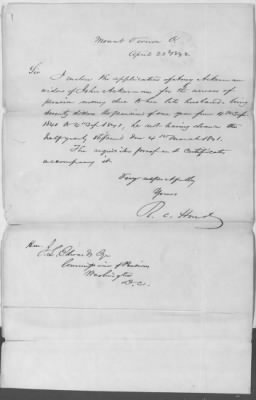 Mount Vernon O.
April 22 1842
Sir
I enclose the application of Mary Ackerman
widow of John Ackerman for the arrears of
pension money due to her late husband being
the pension of one year from 4th Sep.
1840 to 4th Sep. 1841, he not having drawn the
half yearly due 4th March 1841.
The requisite proof and certificate
accompany it.
Very respectfully
Yours
R. C. Hurd
Hon J. L. Edwards Esqr
Commissioner of Pensions
Washington
D.C.